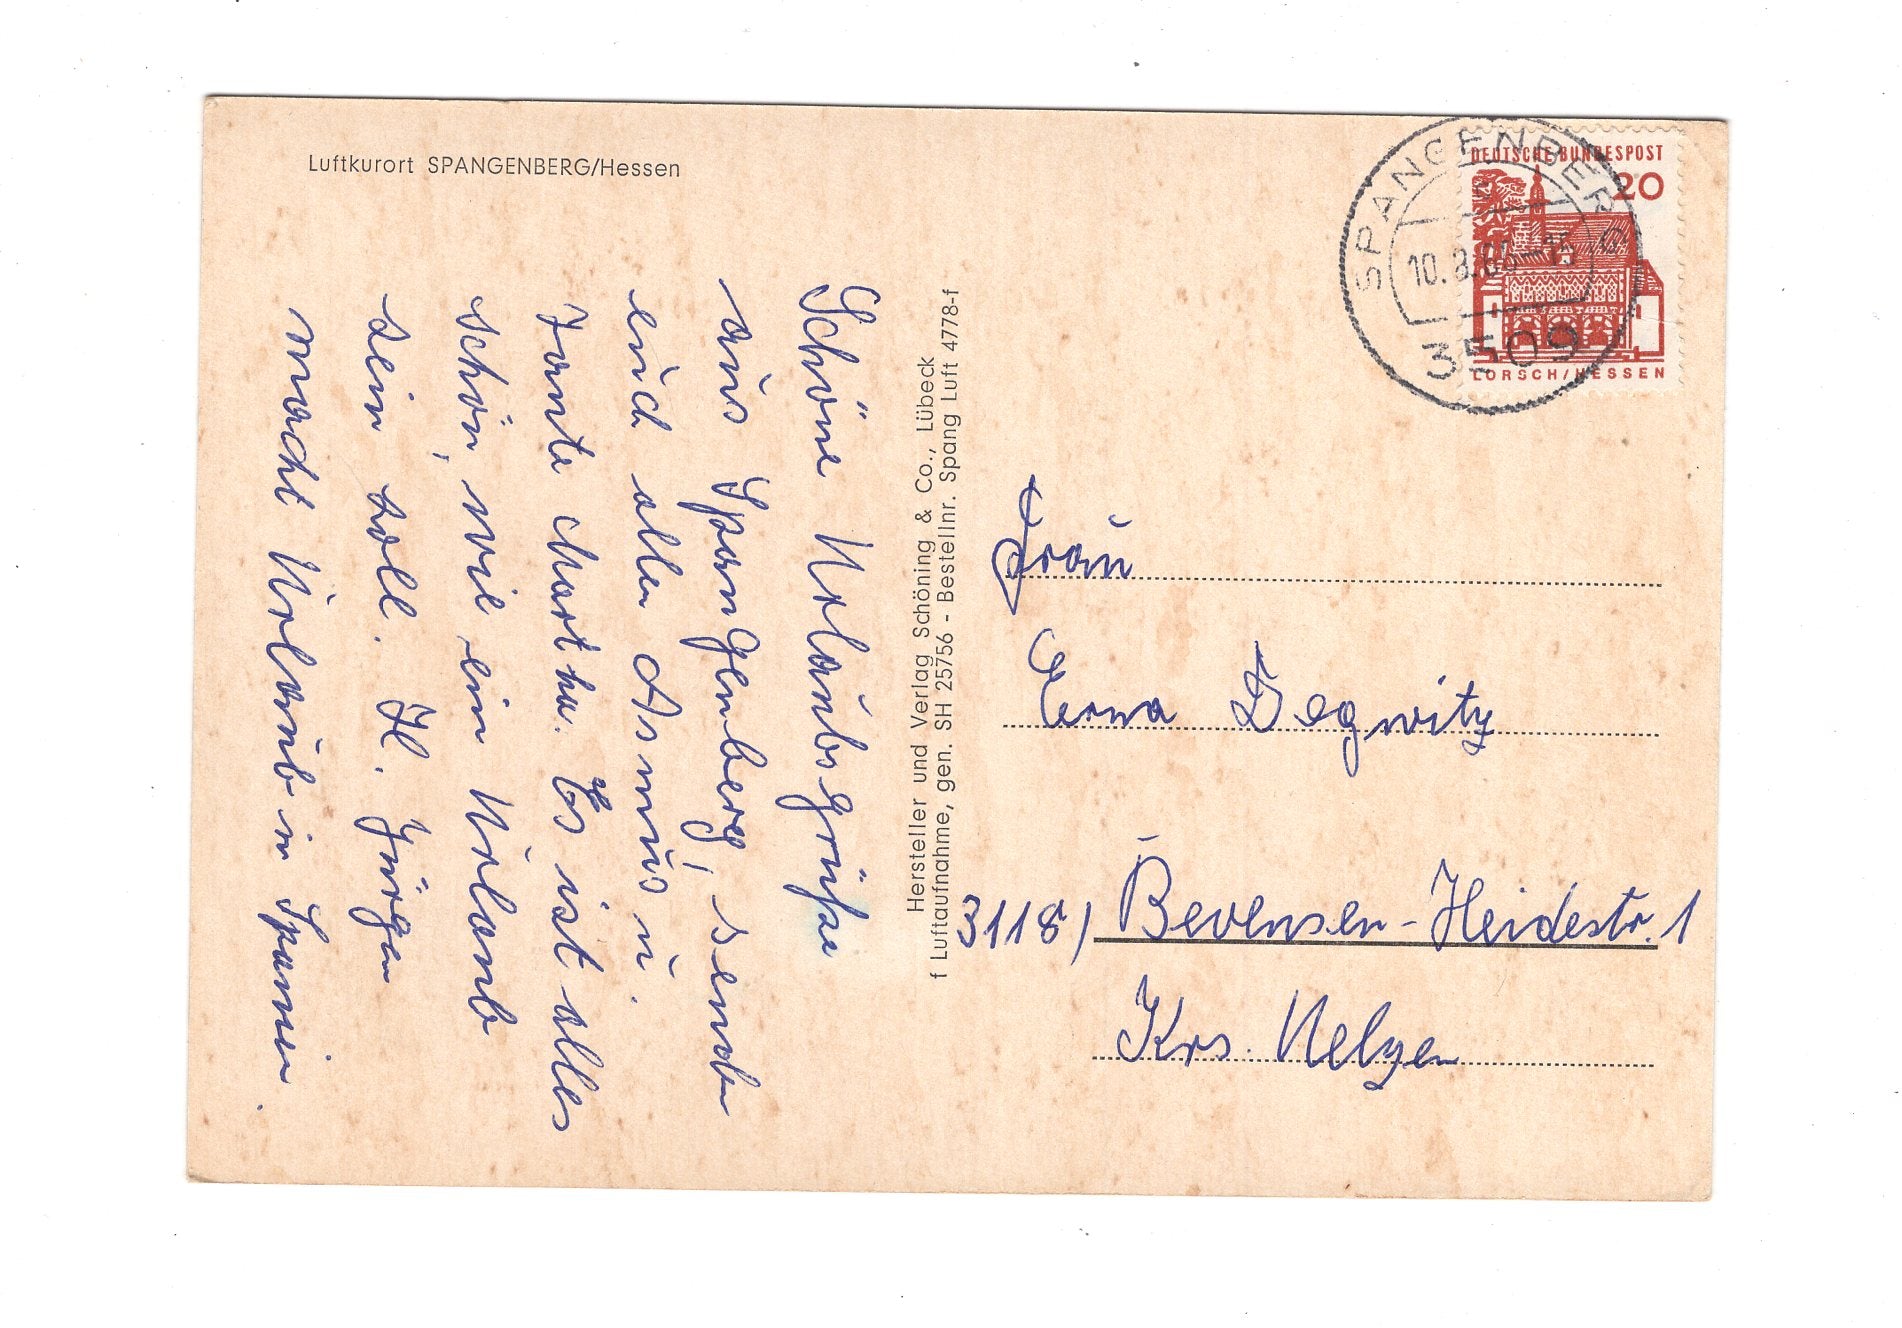 Luftkurort SPANGENBERG/Hessen
Schöne Urlaubsgrüße
aus Spangenberg, senden
euch allen Asmus u.
Tante Martha. Es ist alles
schön, wie ein Urlaub
sein soll. Hl. Jürgen
macht Urlaub in Spanien.
Hersteller und Verlag Schöning & Co., Lübeck
f Luftaufnahme, gen. SH 25756 - Bestellnr. Spang Luft 4778-f
SPANGENBERG
10.8.66-15
3509
DEUTSCHE BUNDESPOST
20
LORSCH/HESSEN
Frau
Erna Degwitz
3118) Bevensen-Heidestr. 1
Krs. Uelzen